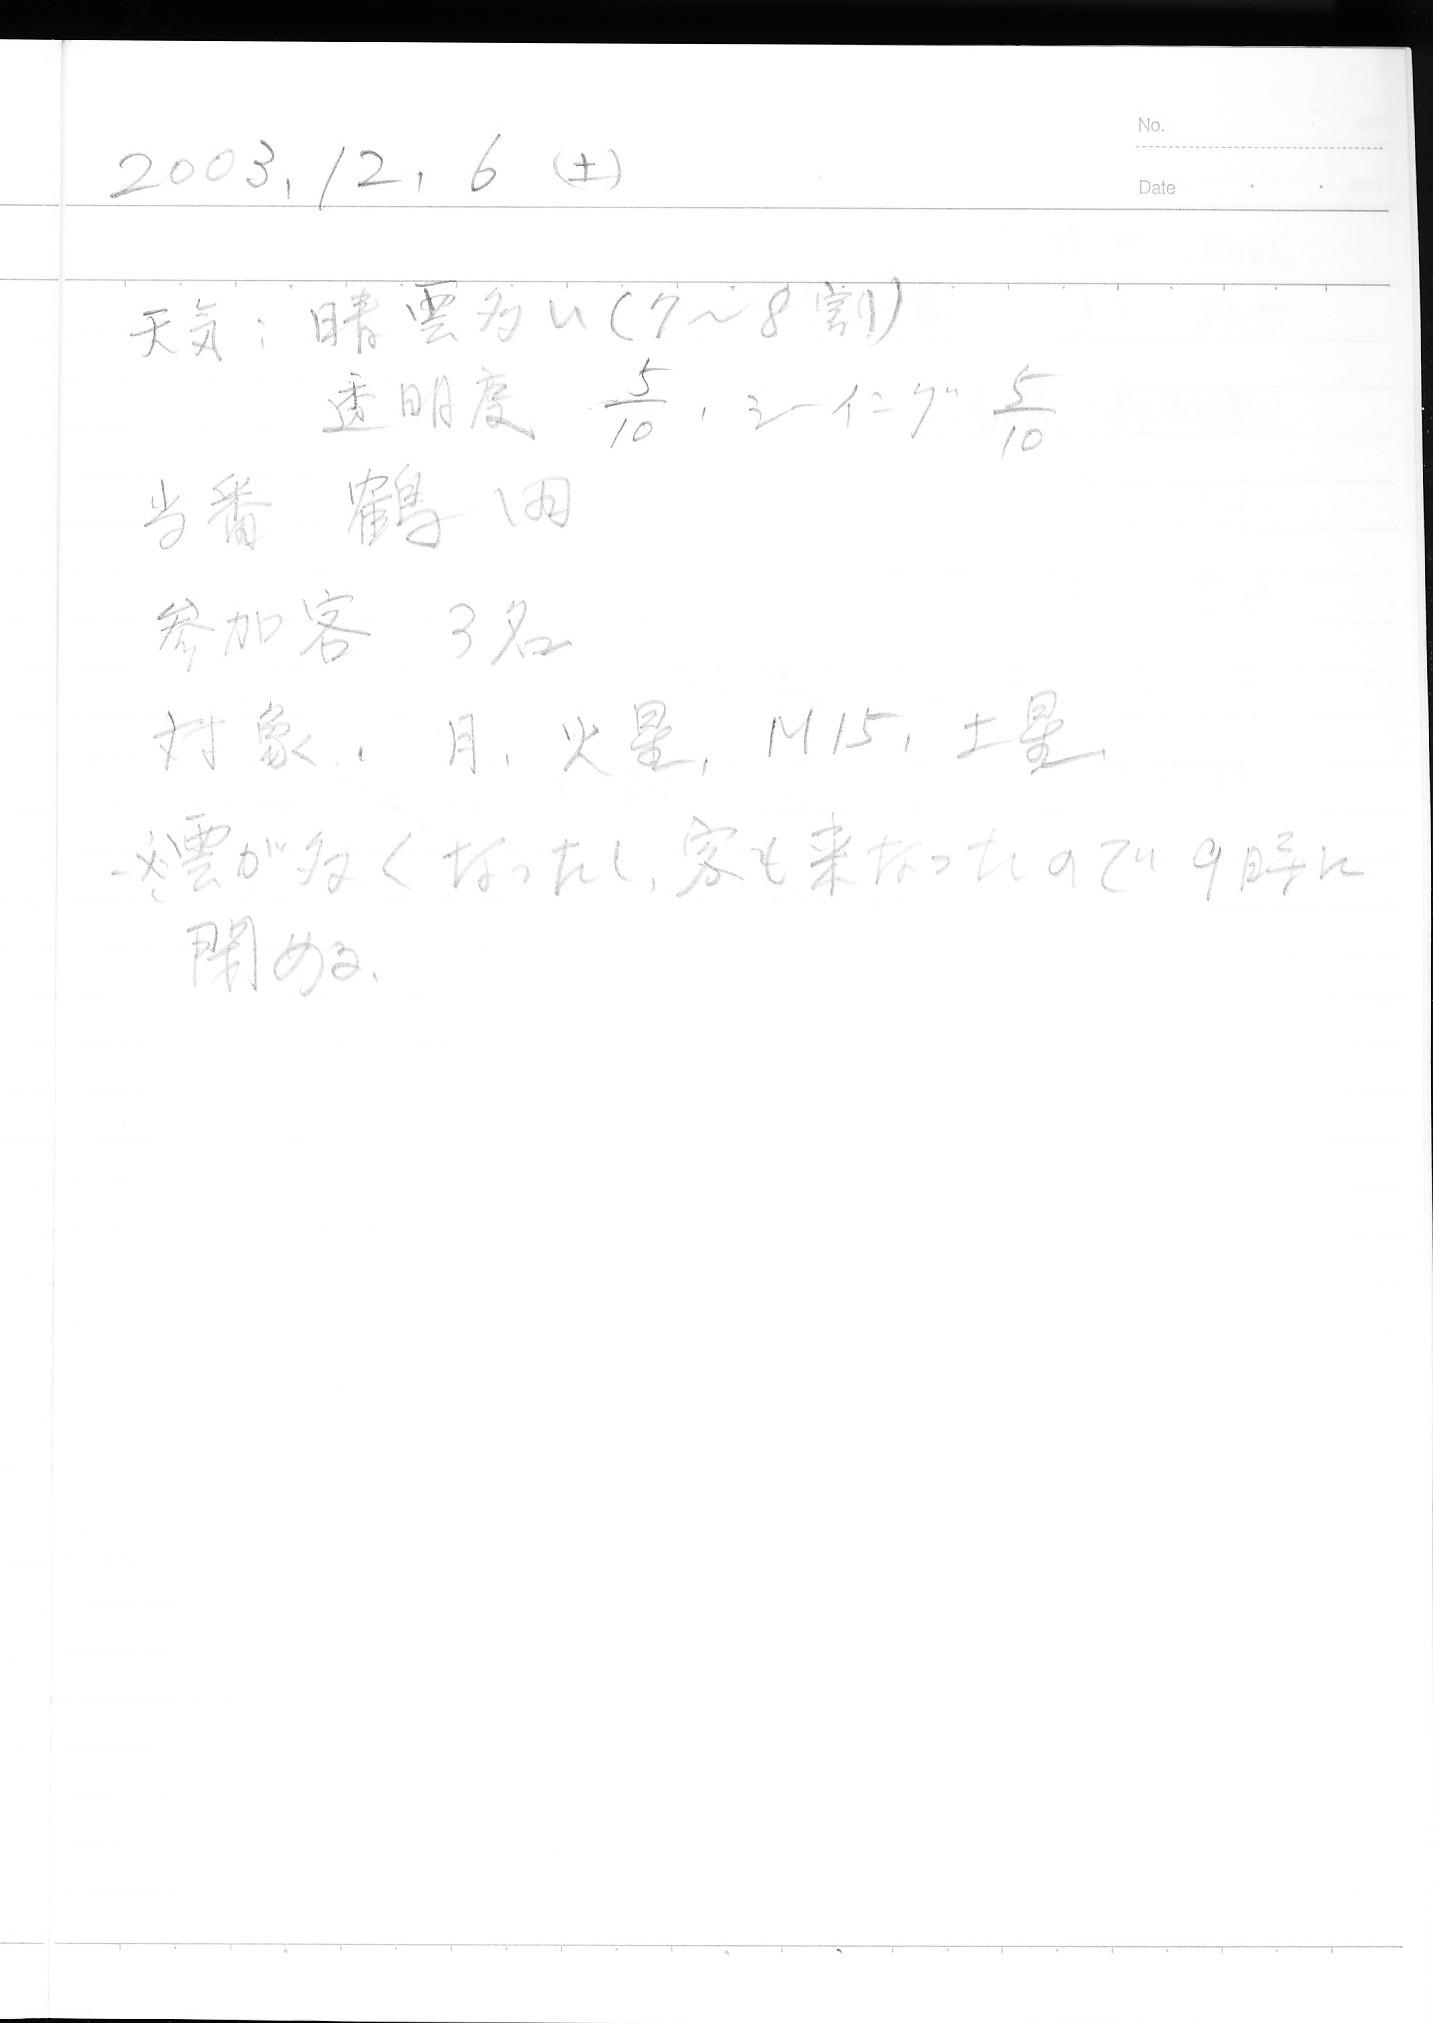 No.
2003, 12, 6 (土)
Date
天気: 晴 雲多い (7～8割)
透明度 5/10, シーイング 5/10
当番 鶴田
参加客 3名
対象. 月, 火星, M15, 土星,
※雲が多くなったし, 客も来なったので 9時に
閉める.